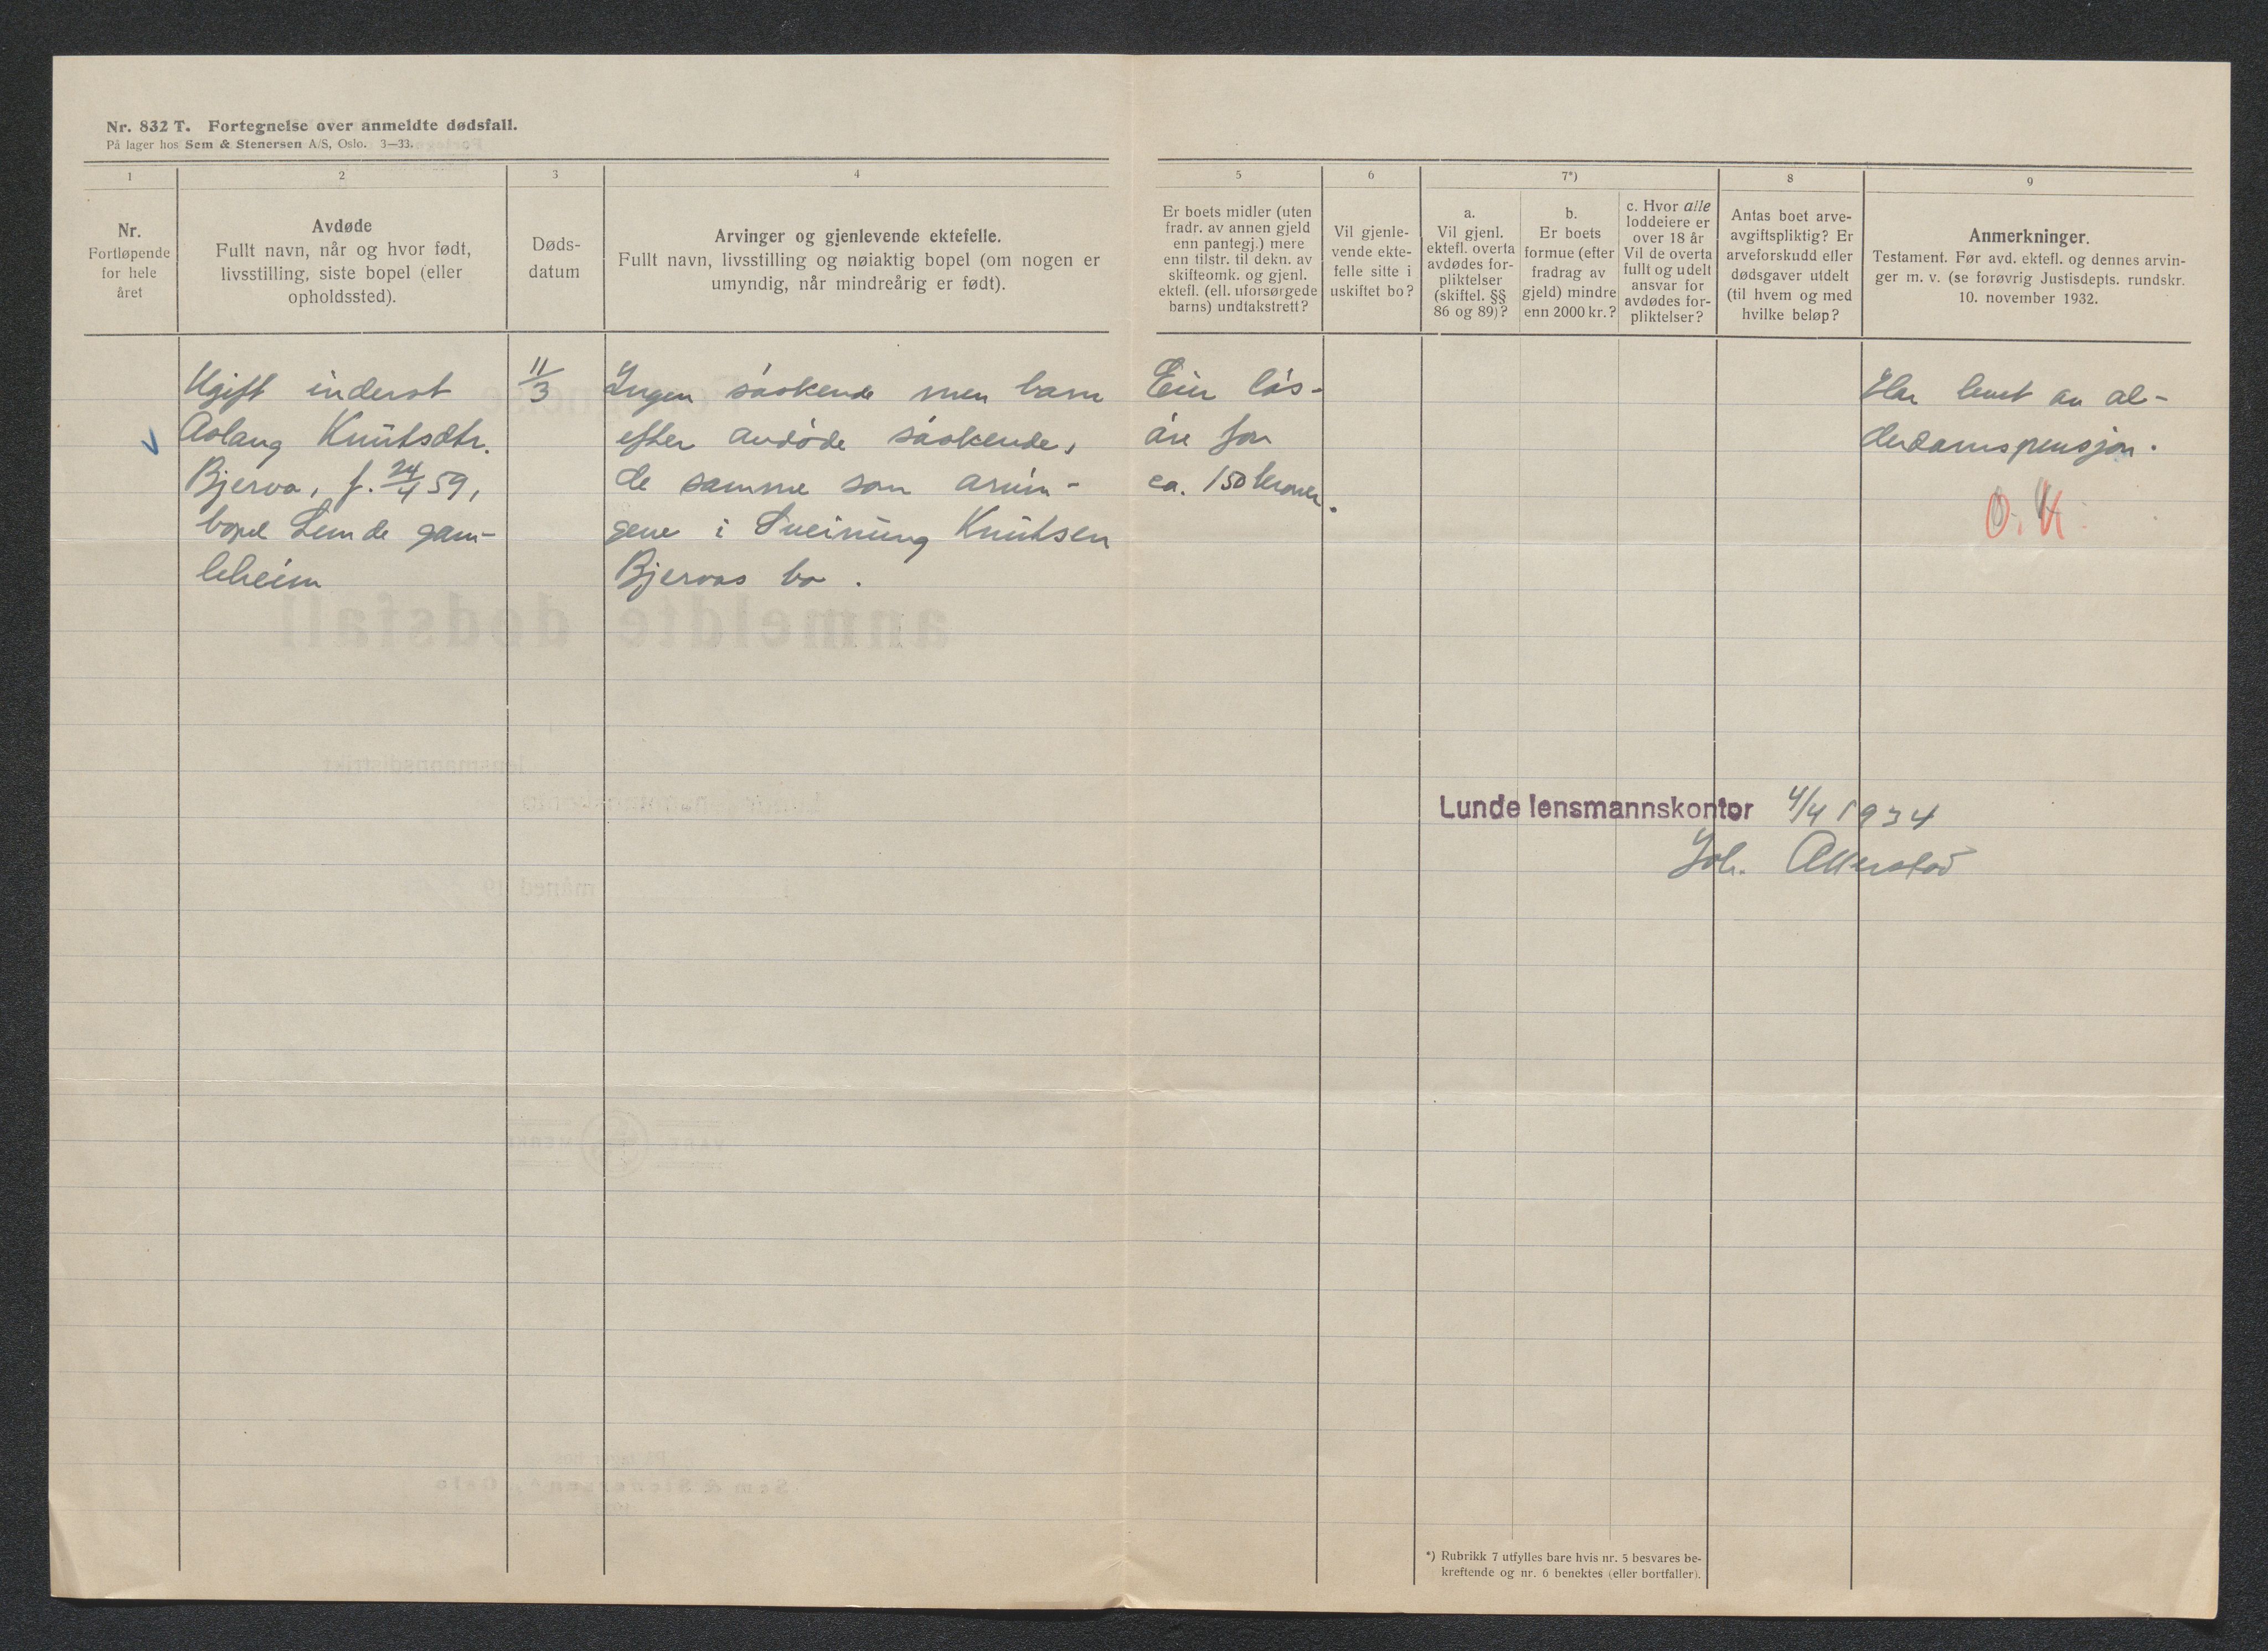 Nr. 832 T. Fortegnelse over anmeldte dødsfall.
På lager hos Sem & Stenersen A/S, Oslo. 3—33.
1
2
3
4
5
6
7*)
8
9
Nr.
Fortløpende
for hele
året
Avdøde
Fullt navn, når og hvor født,
livsstilling, siste bopel (eller
opholdssted).
Døds-
datum
Arvinger og gjenlevende ektefelle.
Fullt navn, livsstilling og nøiaktig bopel (om nogen er
umyndig, når mindreårig er født).
Er boets midler (uten
fradr. av annen gjeld
enn pantegj.) mere
enn tilstr. til dekn. av
skifteomk. og gjenl.
ektefl. (ell. uforsørgede
barns) undtakstrett?
Vil gjenle-
vende ekte-
felle sitte i
uskiftet bo?
a.
Vil gjenl.
ektefl. overta
avdødes for-
pliktelser
(skiftel. §§
86 og 89)?
b.
Er boets
formue (efter
fradrag av
gjeld) mindre
enn 2000 kr.?
c. Hvor alle
loddeiere er
over 18 år
Vil de overta
fullt og udelt
ansvar for
avdødes for-
pliktelser?
Antas boet arve-
avgiftspliktig? Er
arveforskudd eller
dødsgaver utdelt
(til hvem og med
hvilke beløp?
Anmerkninger.
Testament. Før avd. ektefl. og dennes arvin-
ger m. v. (se forøvrig Justisdepts. rundskr.
10. november 1932.
Ugift inderst
Aslaug Knutsdtr.
Bjerva, f. 24/4 59,
bopel Lunde gam-
leheim
11/3
Ingen søskende men barn
efter avdøde søskende,
de samme som arvin-
gene i Sveinung Knutsen
Bjervas bo.
Eier løs-
øre for
ca. 150 kroner.
Har levet av al-
derdomspensjon.
O.K.
Lunde lensmannskontor 4/4 1934
Joh.
*) Rubrikk 7 utfylles bare hvis nr. 5 besvares be-
kreftende og nr. 6 benektes (eller bortfaller).